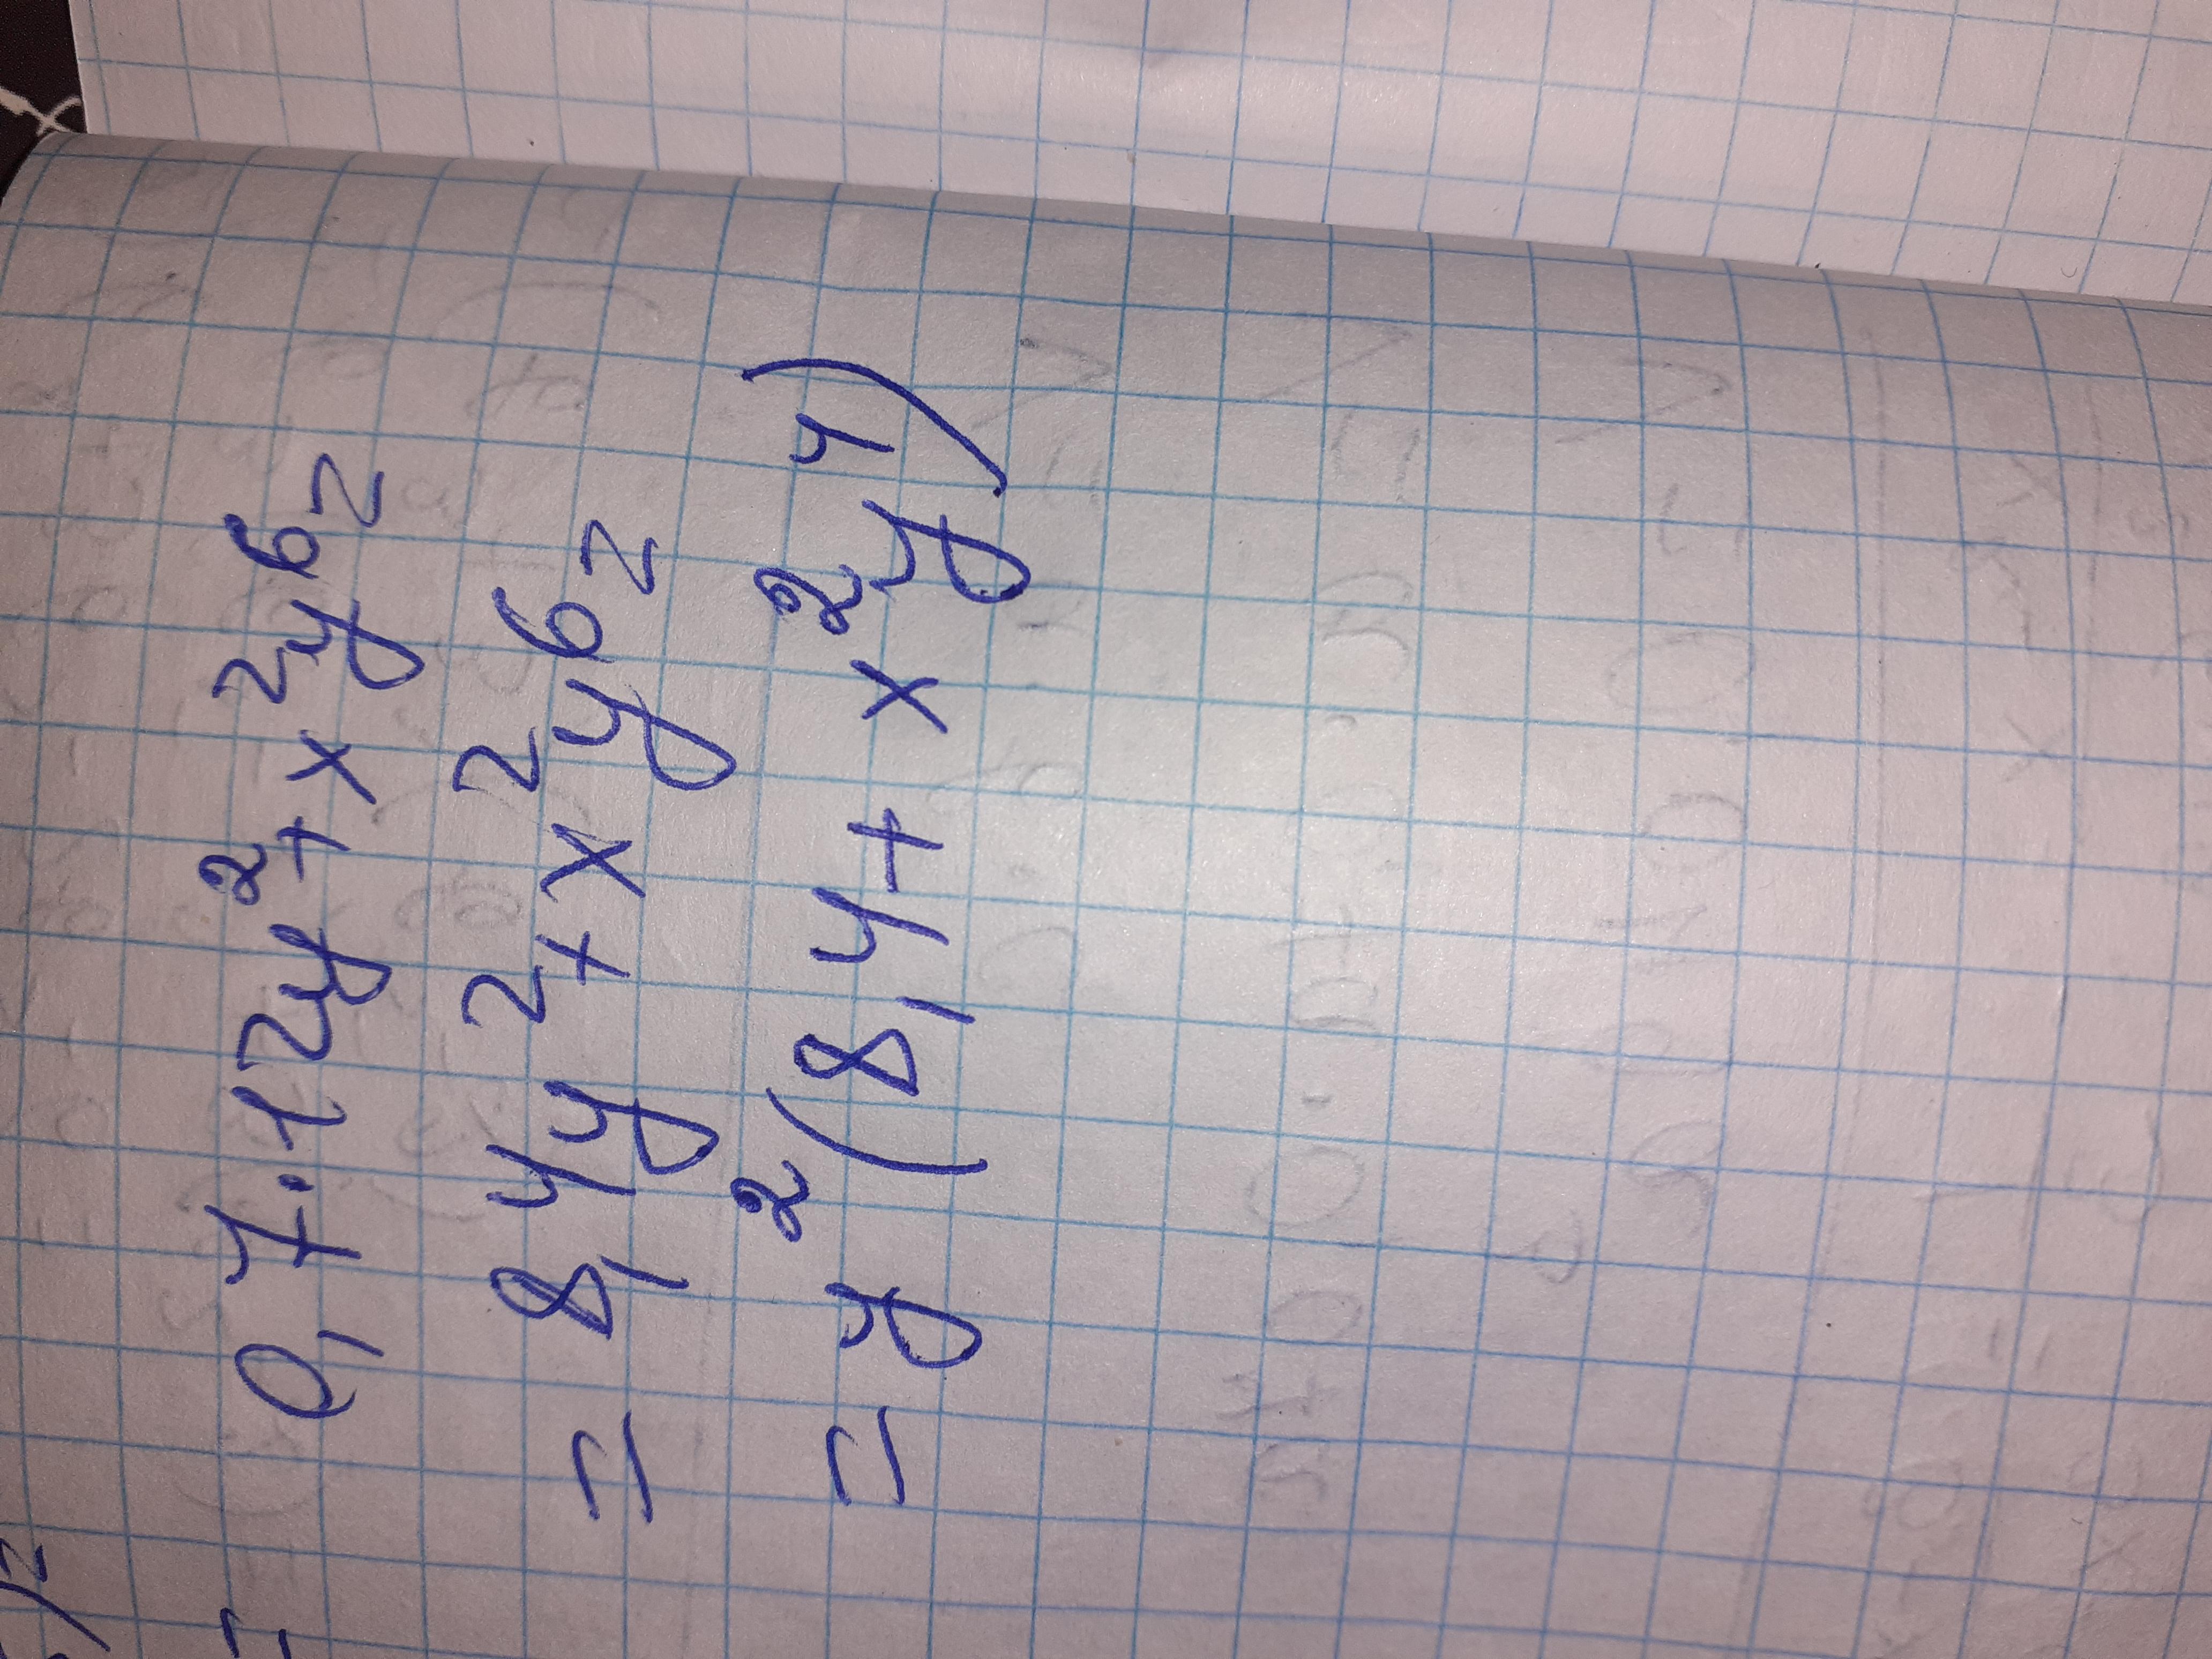 0,7·12y²+x²y⁶=
=8,4y²+x²y⁶=
=y²(8,4+x²y⁴)